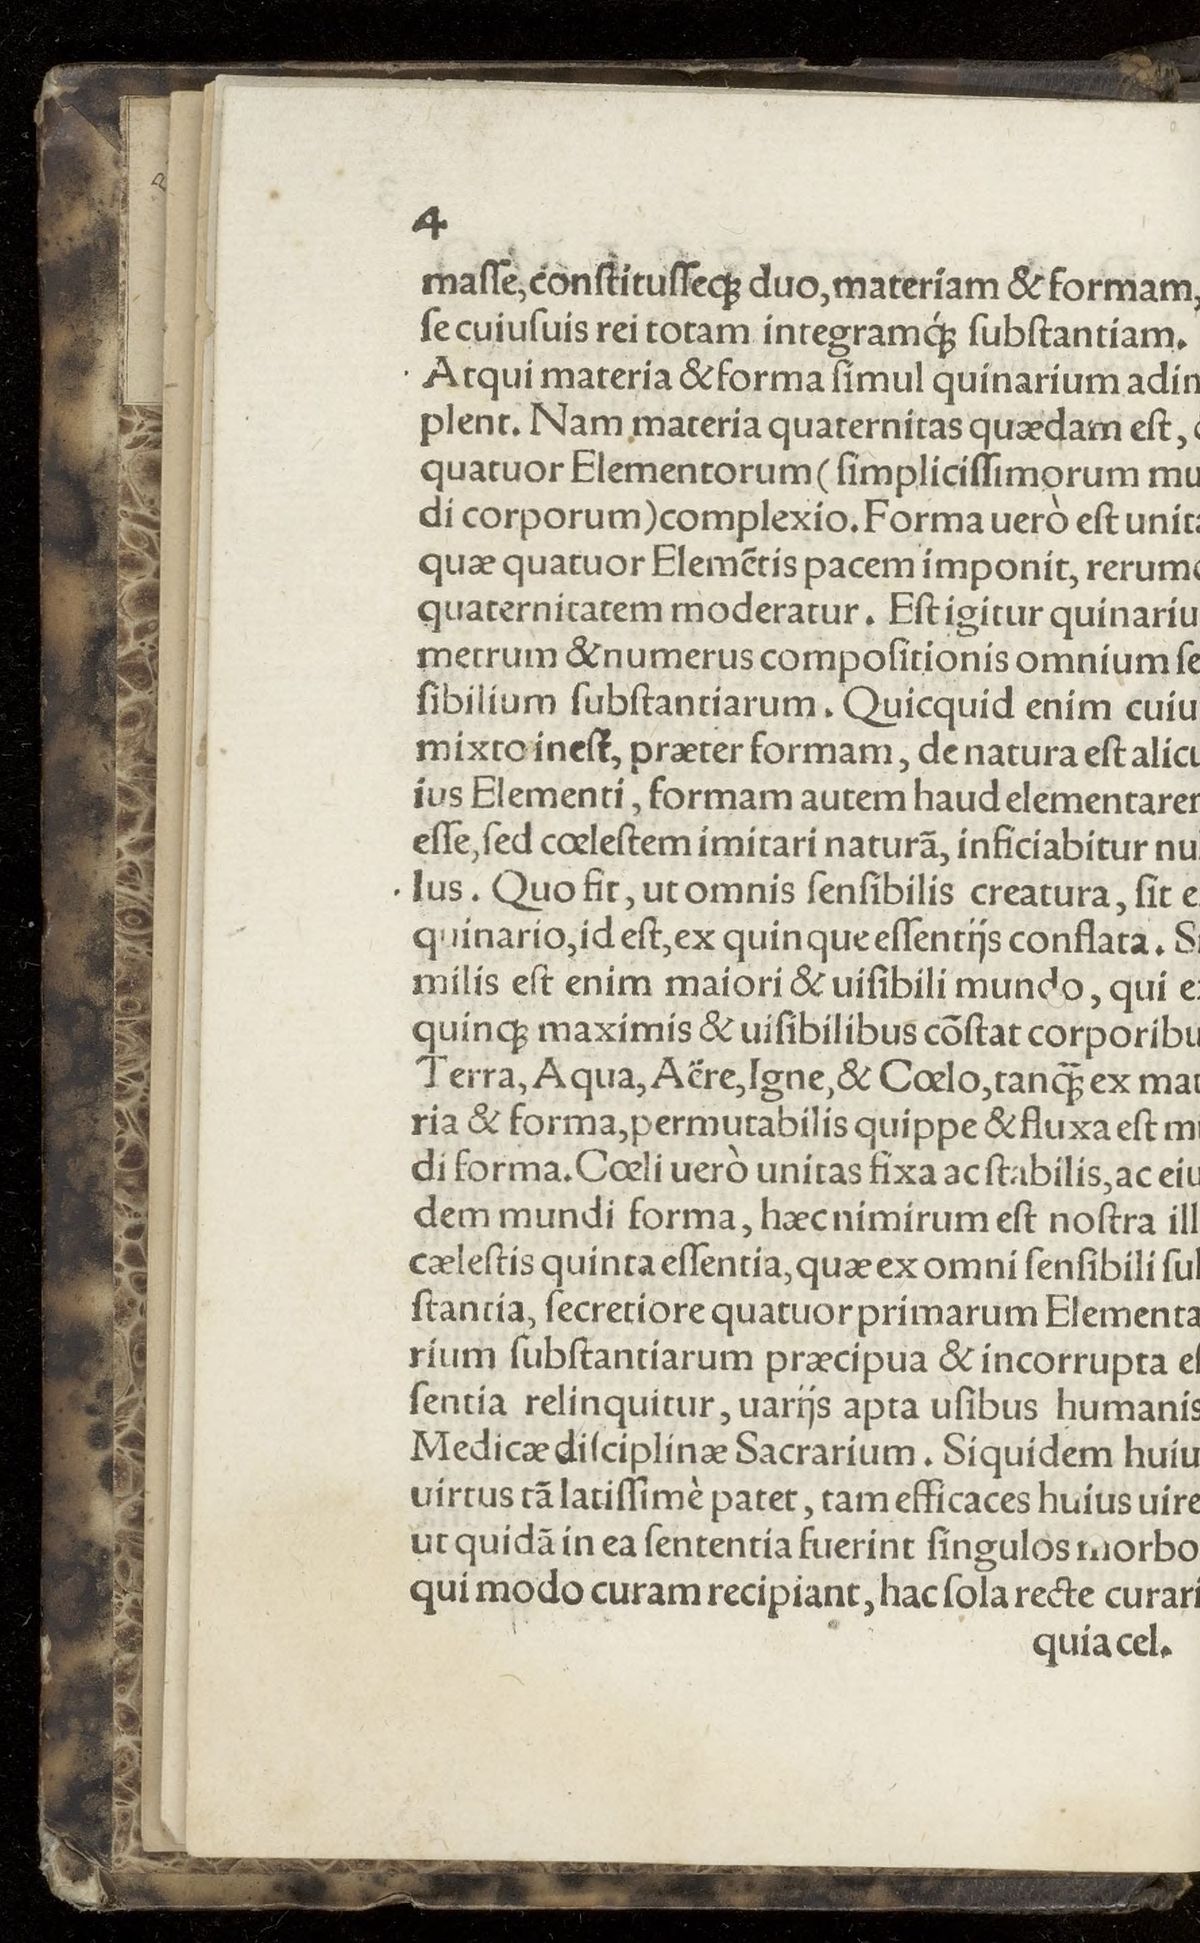 4
maſſe, conſtituſſeqꝫ duo, materiam & formam,
ſe cuiuſuis rei totam integramq́ꝫ ſubſtantiam.
Atqui materia & forma ſimul quinarium adim
plent. Nam materia quaternitas quædam eſt,
quatuor Elementorum (ſimpliciſſimorum mu
di corporum) complexio. Forma uerò eſt unita
quæ quatuor Elemētis pacem imponit, rerum
quaternitatem moderatur. Eſt igitur quinariu
metrum & numerus compoſitionis omnium ſe
ſibilium ſubſtantiarum. Quicquid enim cuiu
mixto ineſt, præter formam, de natura eſt alicu
ius Elementi, formam autem haud elementarem
eſſe, ſed cœleſtem imitari naturā, inficiabitur nul
lus. Quo fit, ut omnis ſenſibilis creatura, ſit e
quinario, id eſt, ex quinque eſſentijs conflata. Si
milis eſt enim maiori & uiſibili mundo, qui e
quinqꝫ maximis & uiſibilibus cōſtat corporibu
Terra, Aqua, Aëre, Igne, & Cœlo, tanq̄ꝫ ex mat
ria & forma, permutabilis quippe & fluxa eſt mu
di forma. Cœli uerò unitas fixa ac ſtabilis, ac eiu
dem mundi forma, hæc nimirum eſt noſtra ill
cæleſtis quinta eſſentia, quæ ex omni ſenſibili ſub
ſtantia, ſecretiore quatuor primarum Elementa
rium ſubſtantiarum præcipua & incorrupta eſ
ſentia relinquitur, uarijs apta uſibus humanis
Medicæ diſciplinæ Sacrarium. Siquidem huiu
uirtus tā latiſſimè patet, tam efficaces huius uire
ut quidā in ea ſententia fuerint ſingulos morbo
qui modo curam recipiant, hac ſola recte curari
quia cel.